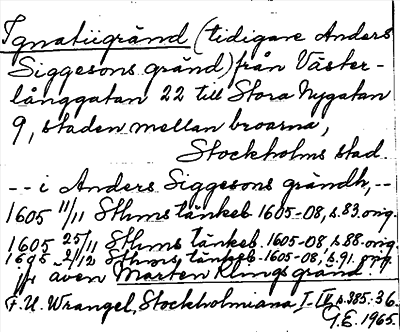 Ignatiigränd (tidigare Anders
Siggesons gränd) från Väster-
långgatan 22 till Stora Nygatan
9, staden mellan broarna,
Stockholms stad.
-- i Anders Siggesons grändh, --
1605 11/11 Sthms tänkeb. 1605-08, s.83. orig.
1605 25/11 Sthms tänkeb. 1605-08 s.88. orig.
1605 2/12 Sthms tänkeb. 1605-08, s.91. orig.
jfr även Mårten Klings gränd!
F.U. Wrangel, Stockholmiana I-IV, s.385-36.
G.E. 1965.